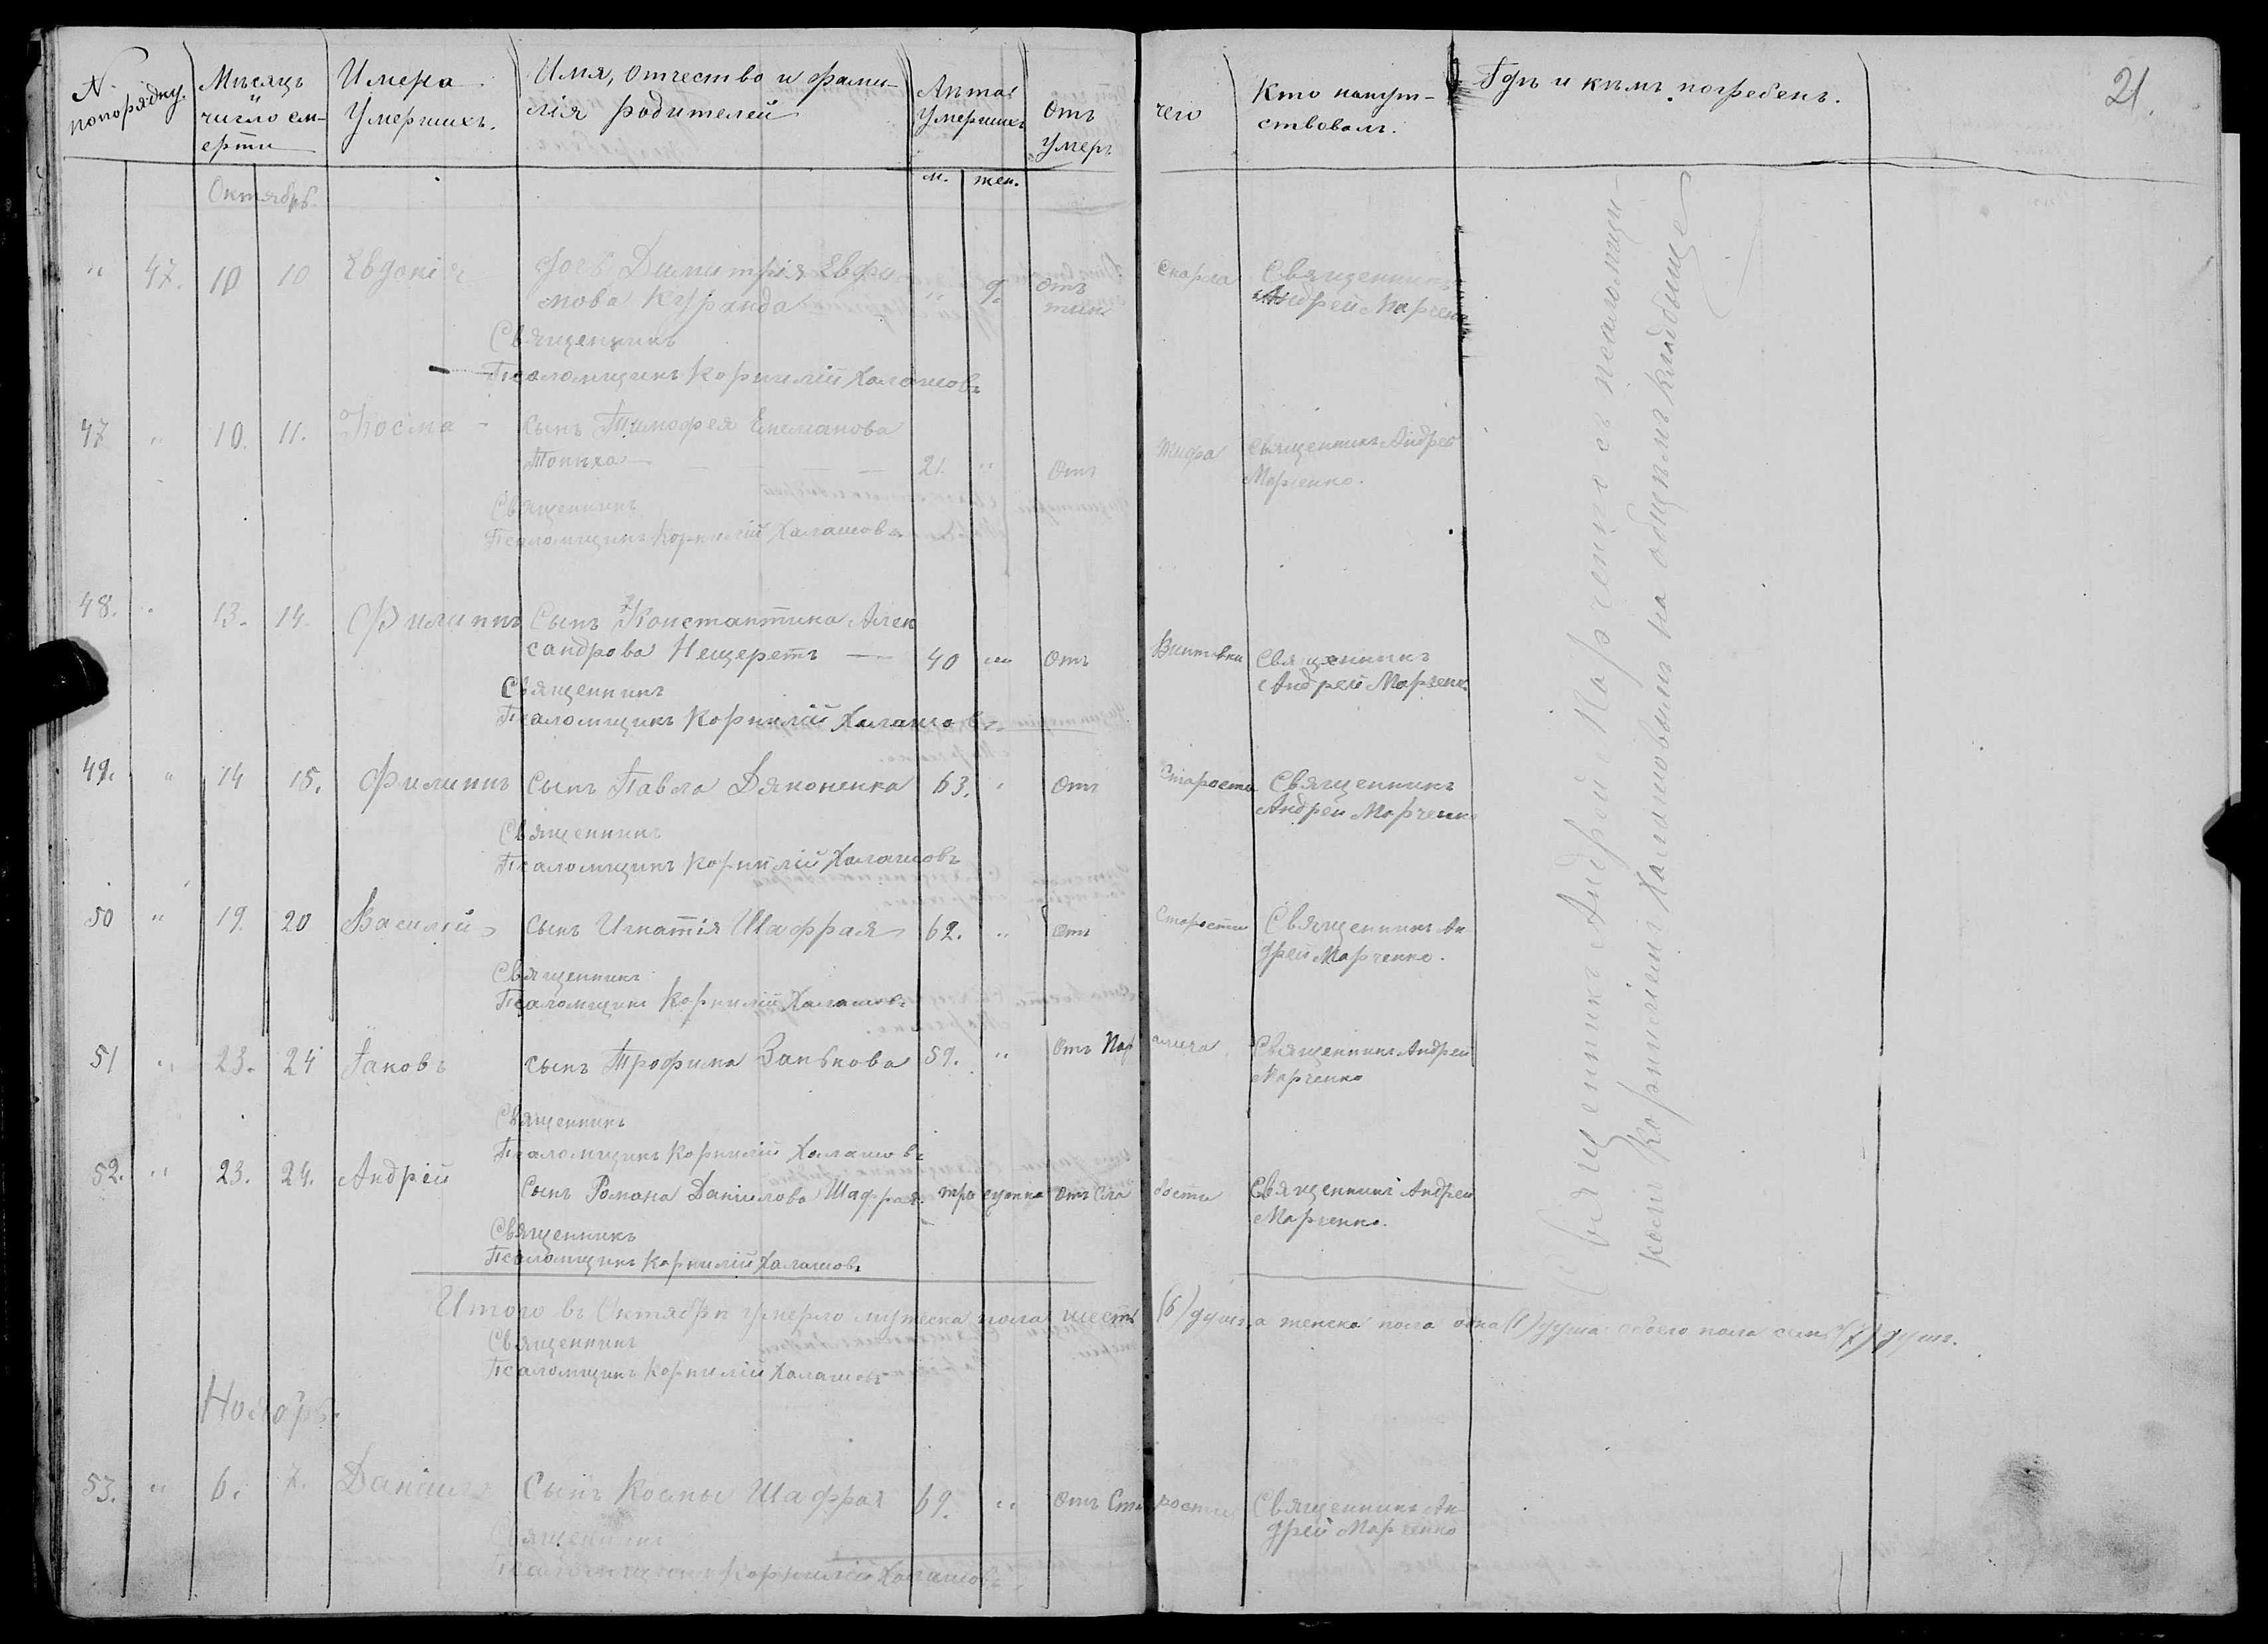 21.
№ попорядку.
Мѣсяцъ и число смерти
Имена Умершихъ.
Имя, Отчество и фамилія родителей
Лѣта Умершихъ
м. жен.
Отъ чего умеръ
Кто напутствовалъ.
Гдѣ и кѣмъ погребенъ.
Октябрь.
" 47. 10 10 Евдокія дочь Димитрія Евфи
мова " 9. Отъ Священникъ
Андрей Марченко
Священникъ
Псаломщикъ Корнилій Халашовъ
47 " 10. 11. Косма сынъ Тимофея
21. " Отъ Тифа Священникъ Андрей
Марченко.
Священникъ
Псаломщикъ Корнилій Халашовъ
48. " 13. 14. Филиппъ Сынъ Константина Алек
сандрова Нещеретъ 40 " Отъ Священникъ
Андрей Марченко
Священникъ
Псаломщикъ Корнилій Халашовъ
49. " 14 15. Филиппъ Сынъ Павла Дяконенка 63. " Отъ Старости Священникъ
Андрей Марченко
Священникъ
Псаломщикъ Корнилій Халашовъ
50 " 19. 20 Василій Сынъ Игнатія Шаффрая 62. " Отъ Старости Священникъ Ан
дрей Марченко.
Священникъ
Псаломщикъ Корнилій Халашовъ
51 " 23. 24 Іаковъ сынъ Трофима Занькова 59. " Отъ Паралича Священникъ Андрей
Марченко
Священникъ
Псаломщикъ Корнилій Халашовъ
52. " 23. 24. Андрей Сынъ Романа Даніилова Шафрая. Отъ Слабости Священникъ Андрей
Марченко.
Священникъ
Псаломщикъ Корнилій Халашовъ
Итого въ Октябрѣ умерло мужеска пола шесть (6) душъ, а женска пола одна (1) душа обоего пола семь (7) душъ.
Священникъ
Псаломщикъ Корнилій Халашовъ
Ноябрь.
53. " 6. 7. Даніилъ Сынъ Космы Шаффрая 69. " Отъ Старости Священникъ Ан
дрей Марченко
Священникъ
Псаломщикъ Корнилій Халашовъ
Священникъ Андрей Марченко съ псаломщи-
комъ Корниліемъ Халашовымъ на общемъ кладбище